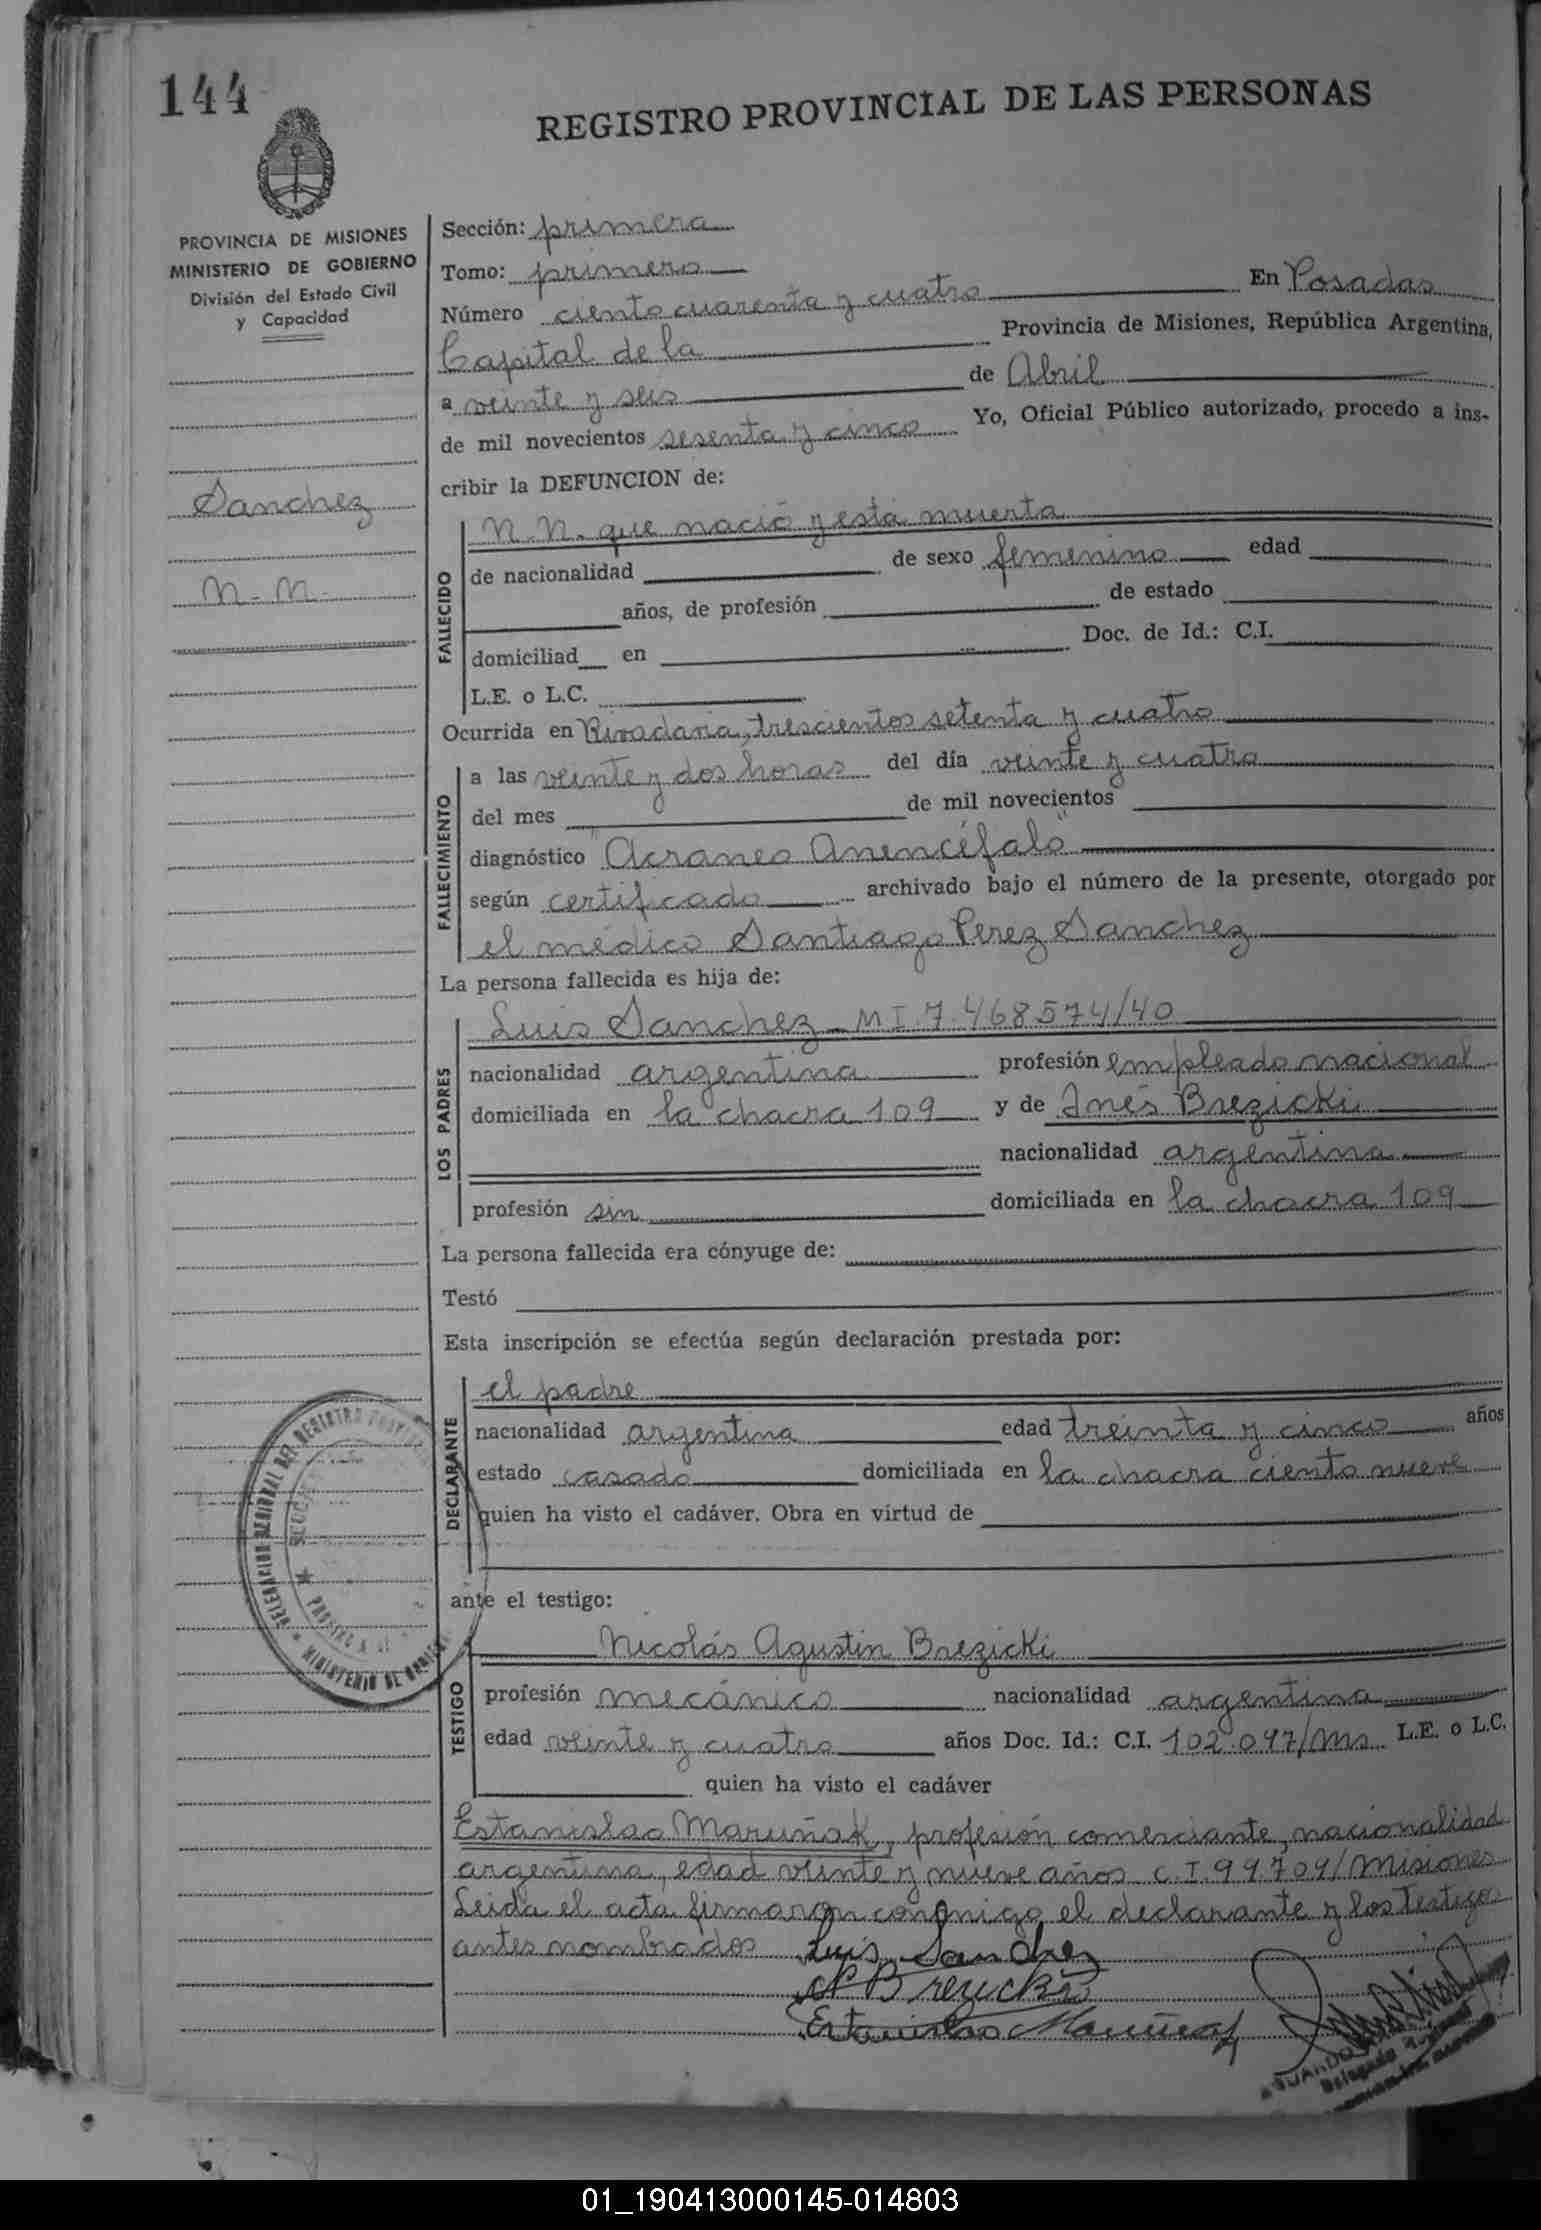 144
REGISTRO PROVINCIAL DE LAS PERSONAS
PROVINCIA DE MISIONES
MINISTERIO DE GOBIERNO
División del Estado Civil
y Capacidad
Sanchez
N. N.
Sección: primera
Tomo: primero
Número ciento cuarenta y cuatro En Posadas
Capital de la Provincia de Misiones, República Argentina,
a veinte y seis de Abril
de mil novecientos sesenta y cinco Yo, Oficial Público autorizado, procedo a ins-
cribir la DEFUNCION de:
FALLECIDO
N. N. que nació y está muerta
de nacionalidad de sexo femenino edad
años, de profesión de estado
domiciliad en Doc. de Id.: C.I.
L.E. o L.C.
Ocurrida en Rivadavia, trescientos setenta y cuatro
FALLECIMIENTO
a las veinte y dos horas del día veinte y cuatro
del mes de mil novecientos
diagnóstico "Acraneo Anencífalo"
según certificado archivado bajo el número de la presente, otorgado por
el médico Santiago Perez Sanchez
La persona fallecida es hija de:
LOS PADRES
Luis Sanchez M I 7.468574/40
nacionalidad argentina profesión empleado nacional
domiciliada en la chacra 109 y de Inés Brezicki
nacionalidad argentina
profesión sin domiciliada en la chacra 109
La persona fallecida era cónyuge de:
Testó
Esta inscripción se efectúa según declaración prestada por:
DECLARANTE
el padre
nacionalidad argentina edad treinta y cinco años
estado casado domiciliada en la chacra ciento nueve
quien ha visto el cadáver. Obra en virtud de
ante el testigo:
TESTIGO
Nicolás Agustin Brezicki
profesión mecánico nacionalidad argentina
edad veinte y cuatro años Doc. Id.: C.I. 102.097/Ms L.E. o L.C.
quien ha visto el cadáver
Estanislao Maruñak, profesión comerciante, nacionalidad
argentina, edad veinte y nueve años C.I. 99.709/Misiones
Leida el acta firmaron conmigo el declarante y los testigos
antes nombrados Luis Sanchez
N B rezicki
Estanislao Maruñak
DELEGACION GENERAL DEL REGISTRO
MINISTERIO DE
Delegado
01_190413000145-014803